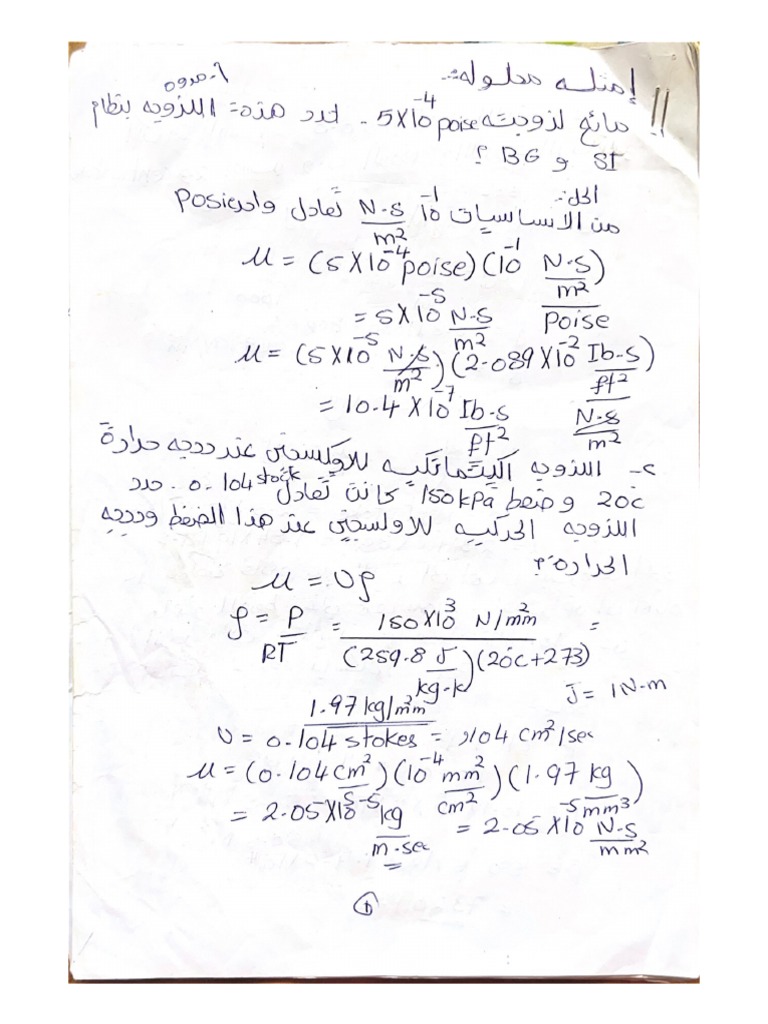 أمثله محلوله:-
1! مائع لزوجته 5X10^-4 poise - حدد هذه اللزوجه بنظام
SI و BG ؟
الحل:-
من الاساسيات 10^-1 N-S/m2 تعادل واحد Posie
M = (5X10^-4 poise)(10^-1 N-S/m2/Poise)
= 5X10^-5 N-S/m2
M = (5X10^-5 N-S/m2)(2.089X10^-2 Ib-S/ft2/N-S/m2)
= 10.4X10^-7 Ib-S/ft2
2- اللزوجه الكيتماتكيه للاوكسجين عند درجه حرارة
20c وضغط 150kPa كانت تعادل 0.104 stock. حدد
اللزوجه الحركيه للاولسجين عند هذا الضغط ودرجه
الحراره؟
M = Uρ
ρ = P/RT = 150X10^3 N/mm^2/(259.8 J/kg-k)(20c+273) =
J = 1N-m
1.97 kg/mm
U = 0.104 stokes = ,104 cm2/sec
M = (0.104 cm2/S)(10^-4 mm2/cm2)(1.97 kg/mm3)
= 2.05X10^-5 kg/m-sec = 2.05X10^-5 N-S/mm2